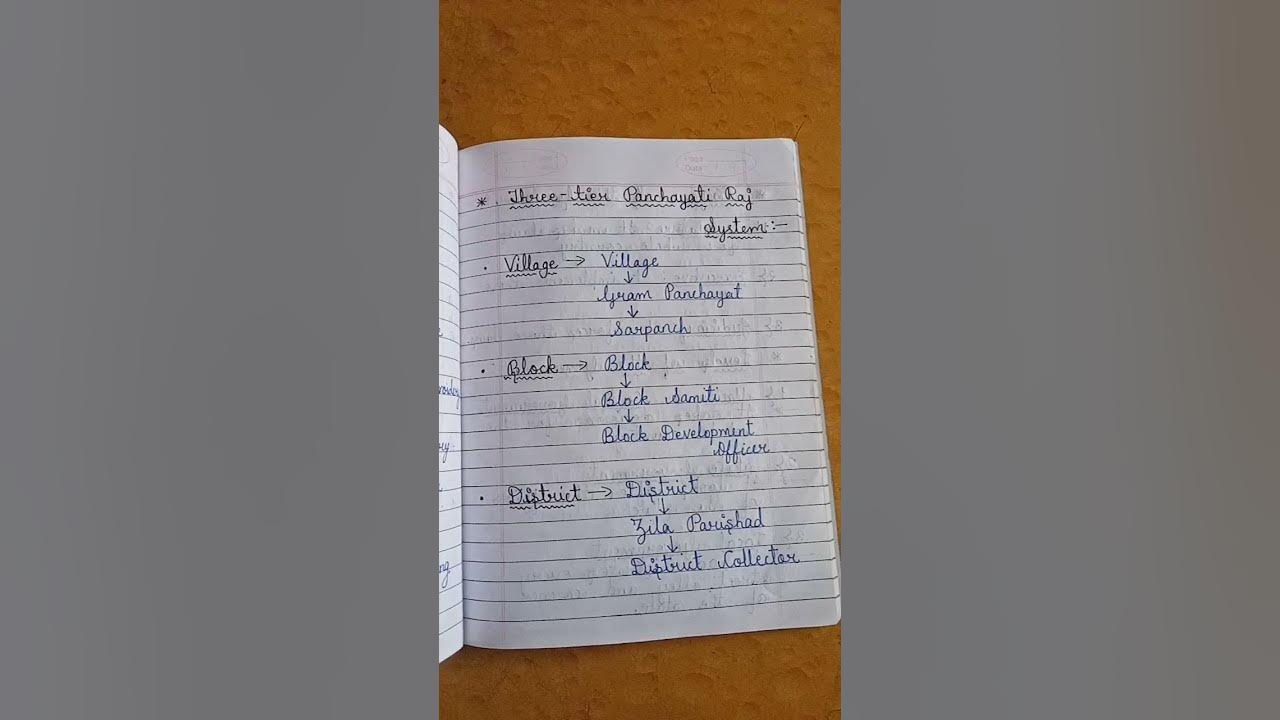 * Three-tier Panchayati Raj
System:-
• Village → Village
↓
Gram Panchayat
↓
Sarpanch
• Block → Block
↓
Block Samiti
↓
Block Development
Officer
• District → District
↓
Zila Parishad
↓
District Collector